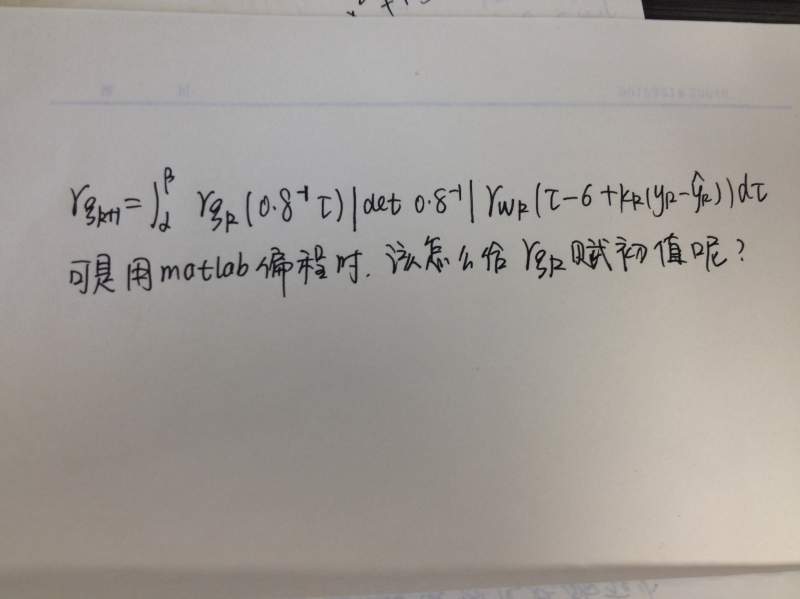 γξk+1 = ∫αβ γξk (0.8⁻¹τ) |det 0.8⁻¹| γwk (τ-6+kk(yk-ŷk))dτ
可是用matlab编程时,该怎么给γξk赋初值呢?